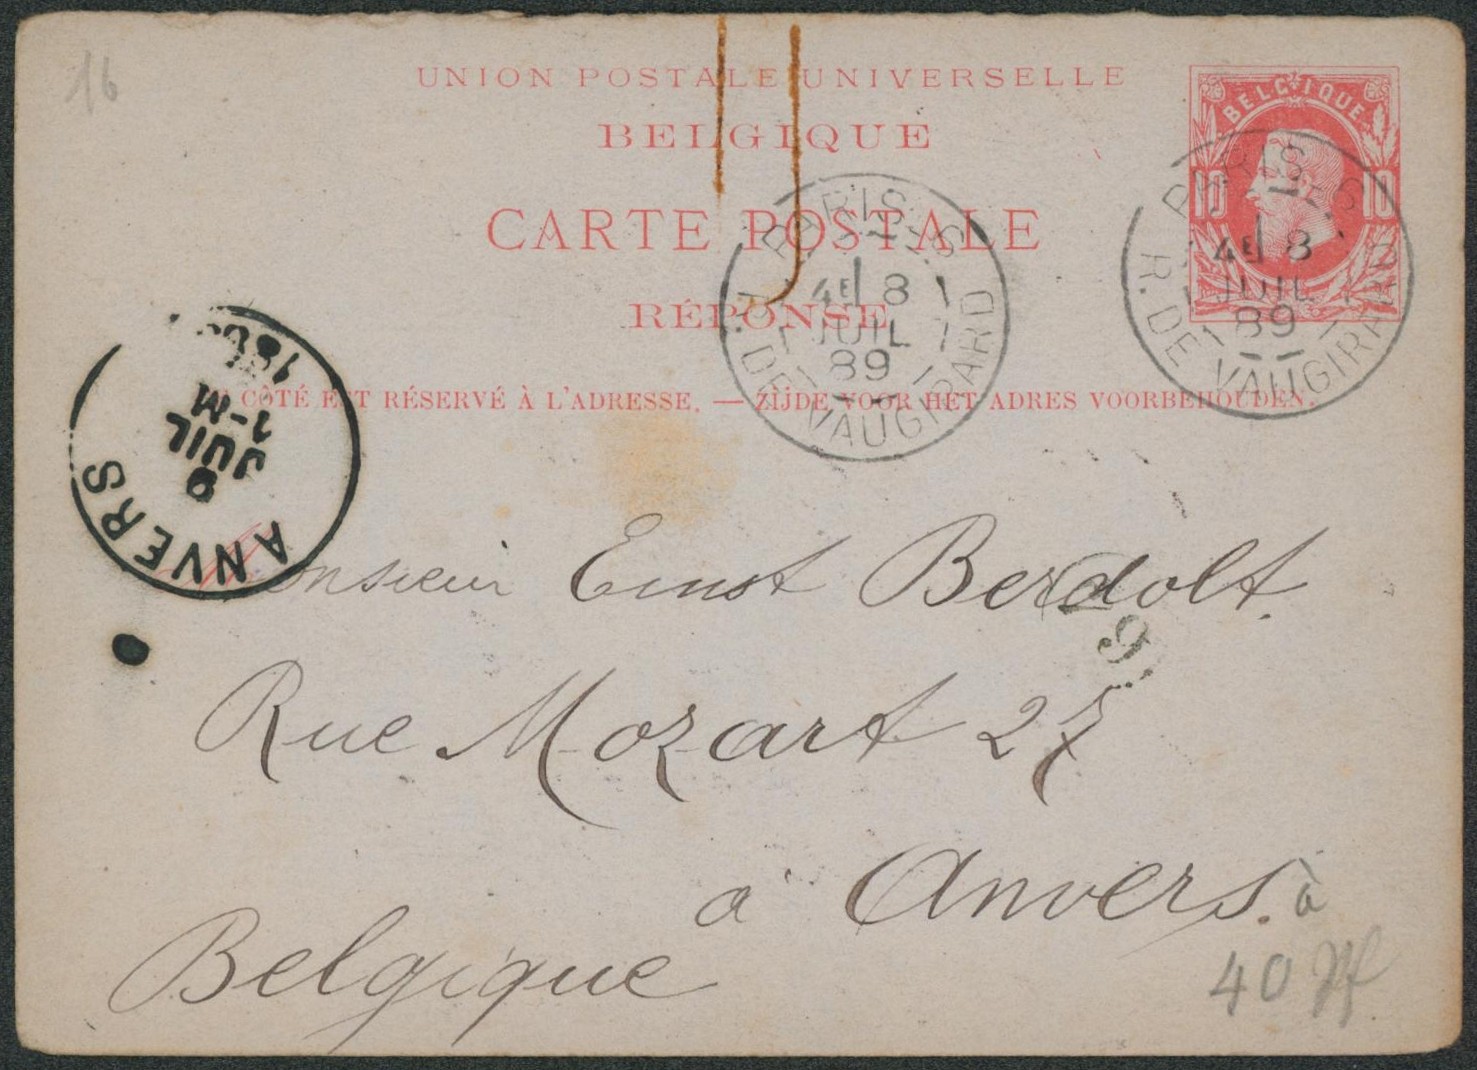 16
UNION POSTALE UNIVERSELLE
BELGIQUE
CARTE POSTALE
RÉPONSE
CÔTÉ EST RÉSERVÉ À L'ADRESSE. — ZIJDE VOOR HET ADRES VOORBEHOUDEN.
BELGIQUE
10 10
PARIS
4E 8
JUIL
89
R. DE VAUGIRARD
PARIS
4E 8
JUIL
89
R. DE VAUGIRARD
ANVERS
9
JUIL
1-M
Monsieur Ernst Berdolt.
9
Rue Mozart 27
à Anvers.
Belgique
à
40 Pf